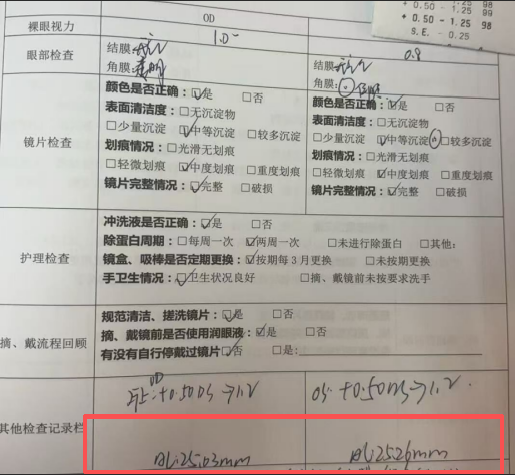 + 0.50 - 1.25 98
+ 0.50 - 1.25 99
+ 0.50 - 1.25 98
S.E. - 0.25
OD
裸眼视力 1.0- 0.8
眼部检查 结膜: 结膜:
角膜:透明 角膜:
镜片检查
颜色是否正确：☑是 □否 颜色是否正确：☑是 □否
表面清洁度：□无沉淀物 表面清洁度：□无沉淀物
□少量沉淀 ☑中等沉淀 □较多沉淀 □少量沉淀 ☑中等沉淀 □较多沉淀
划痕情况：□光滑无划痕 划痕情况：□光滑无划痕
□轻微划痕 ☑中度划痕 □重度划痕 □轻微划痕 ☑中度划痕 □重度划痕
镜片完整情况：☑完整 □破损 镜片完整情况：☑完整 □破损
护理检查
冲洗液是否正确：☑是 □否
除蛋白周期：□每周一次 ☑两周一次 □未进行除蛋白 □其他：
镜盒、吸棒是否定期更换：☑按期每3月更换 □未按期更换
手卫生情况：☑卫生状况良好 □摘、戴镜前未按要求洗手
摘、戴流程回顾
规范清洁、搓洗镜片：☑是 □否
摘、戴镜前是否使用润眼液：☑是 □否
有没有自行停戴过镜片☑否 □是：
其他检查记录栏
OD: +0.50DS→1.2 OS: +0.50DS→1.2
AL:25.03mm AL:25.26mm